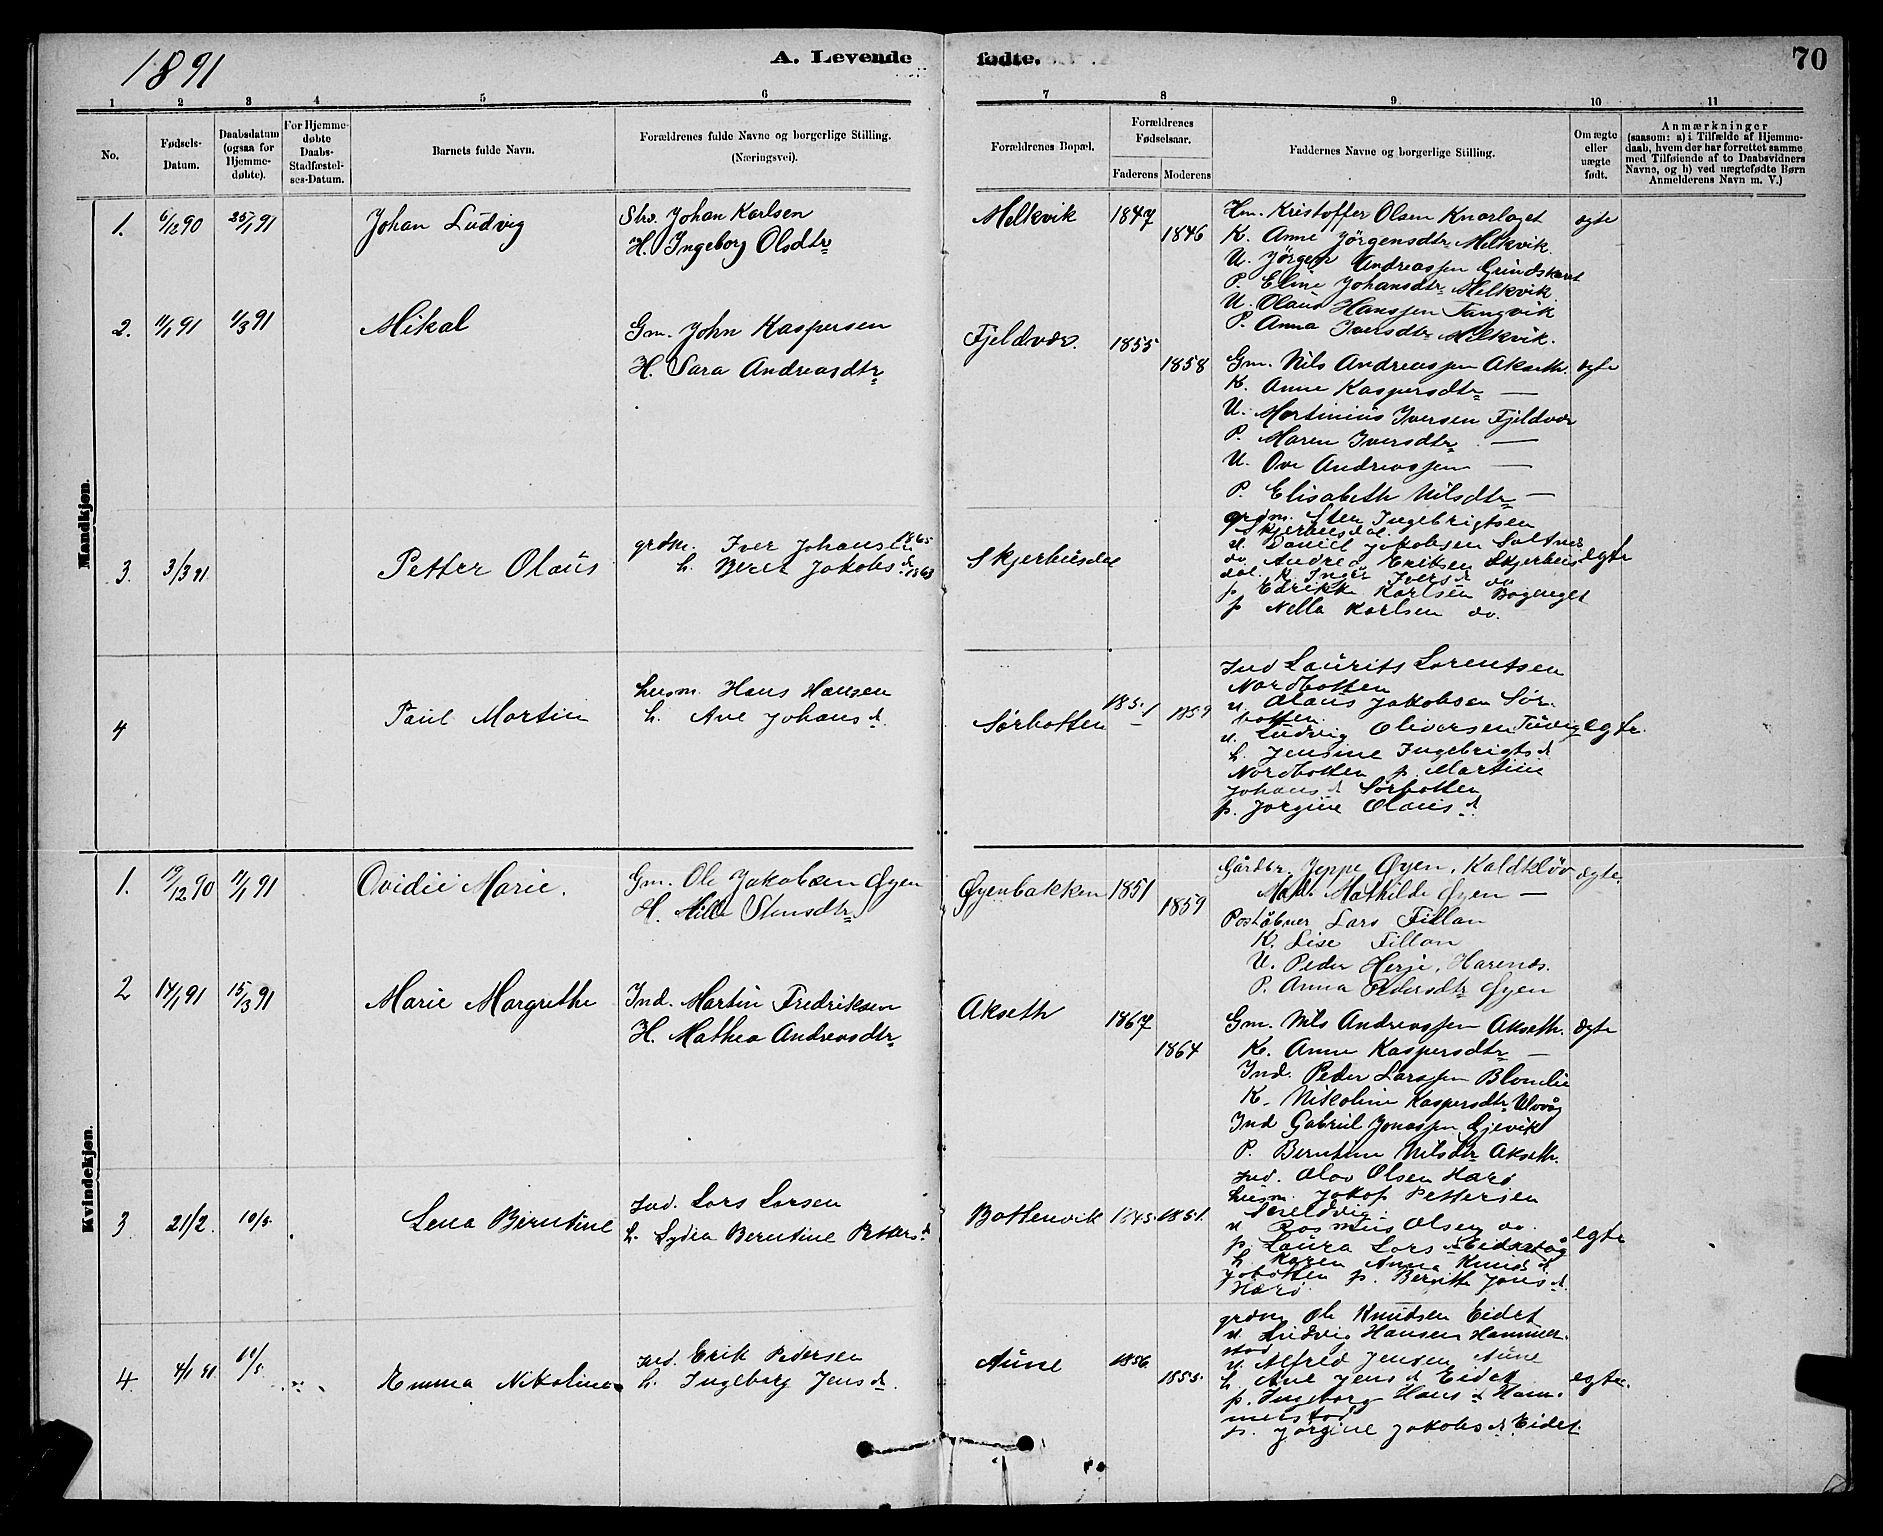 1891
A. Levende
fødte.
70
1 2 3 4 5 6 7 8 9 10 11
No.
Fødsels-
Datum.
Daabsdatum
(ogsaa for
Hjemme-
døbte).
For Hjemme-
døbte
Daabs-
Stadfæstel-
ses-Datum.
Barnets fulde Navn.
Forældrenes fulde Navne og borgerlige Stilling.
(Næringsvei).
Forældrenes Bopæl.
Forældrenes
Fødselsaar.
Faderens Moderens
Faddernes Navne og borgerlige Stilling.
Om ægte
eller
uægte
født.
Anmærkninger
(saasom: a) i Tilfælde af Hjemme-
daab, hvem der har forrettet samme
med Tilføiende af to Daabsvidners
Navne, og b) ved uægtefødte Børn
Anmelderens Navn m. V.)
Mandkjøn.
1. 6/12 90 25/1 91 Johan Ludvig
Johan Karlsen
H. Ingeborg Olsdtr
Melkvik 1847
1846
Hm. Kristoffer Olsen Knarlaget
K. Anne Jörgensdtr Melkvik.
U. Jörgen Andreassen Grindskaret
P. Eline Johansdtr Melkvik
U. Olaus Hanssen Tangvik
P. Anna Iversdtr Melkvik.
egte
2. 11/1 91 1/3 91 Mikal
Gm. John Kaspersen
H. Sara Andreasdtr
Fjeldvær. 1855
1858
Gm. Nils Andreassen Akseth.
K. Anne Kaspersdtr —
U. Martinius Iversen Fjeldvær
P. Maren Iversdtr —
U. Ove Andreassen —
P. Elisabeth Nilsdtr —
egte
3. 3/3 91 Petter Olaüs
grdm. Iver Johansen 1865
h. Beret Jakobs d. 1863
Skjerhüsdal
grdm. Sten Ingebrigtsen
Skjerhüsdal.
u. Daniel Jakobsen
do Andrea Eritsen Skjerhüs
dal. k. Inger Ivers d do
p. Edrikke Karlsen
p Nella Karlsen do.
egte
4 Paül Martin
husm. Hans Hansen
h. Ane Johans d.
Sørbotten 1851 1859
Ind Laürits Lorentsen
Nordbotten
u. Olaüs Jakobsen Sør-
botten.
u. Lüdvig Oliversen
h. Jensine Ingebrigts d
Nordbotten p. Martine
Johans d Sørbotten
p. Jørgine Olaüs d
egte.
Kvindekjøn.
1. 19/12 90 11/1 91 Ovidie Marie.
Gm. Ole Jakobsen Øyen
H. Mille Stensdtr
Øyenbakken 1851
1859
Gårdbr. Jeppe Øyen, Kaldkløv
Mathilde Øyen —
Poståbner Lars Fillan
K. Lise Fillan
U. Peder Herje,
P. Anna Pedersdtr Øyen
ægte.
2 14/1 91 15/3 91 Marie Margrethe
Ind. Martin Fredriksen
H. Mathea Andreasdtr
Akseth 1867
1864
Gm. Nils Andreassen Akseth.
K. Anne Kaspersdtr —
Ind. Peder Larssen Blomlie
K. Nikoline Kaspersdtr Ulvåg
Ind Gabriel Jonassen Gjevik
P. Berntine Nilsdtr Akseth.
ægte
3. 21/2. 10/5. Lena Berntine
Ind. Lars Larsen
h. Lydia Berntine Petters d
Bottenvik 1845 1851.
Ind. Olav Olsen Harø
husm. Jakop Pettersen
u. Rasmüs Olsen do.
p. Laüra Lars d
h Karen Anna Knüds d
p. Bergitte Jons d
Harø
egte
4. 4/1 91 10/5. Emma Nikoline
Ind. Erik Pedersen
h. Ingeborg Jens d.
Aüne 1856
1855.
grdm Ole Knüdsen Eidet
u. Lüdvig Hansen Hammer-
stad
u. Alfred Jensen Aüne
h. Ane Jens d Eidet
p. Ingeborg Hans d Ham-
merstad
p. Jørgine Jakobs d Eidet
egte.